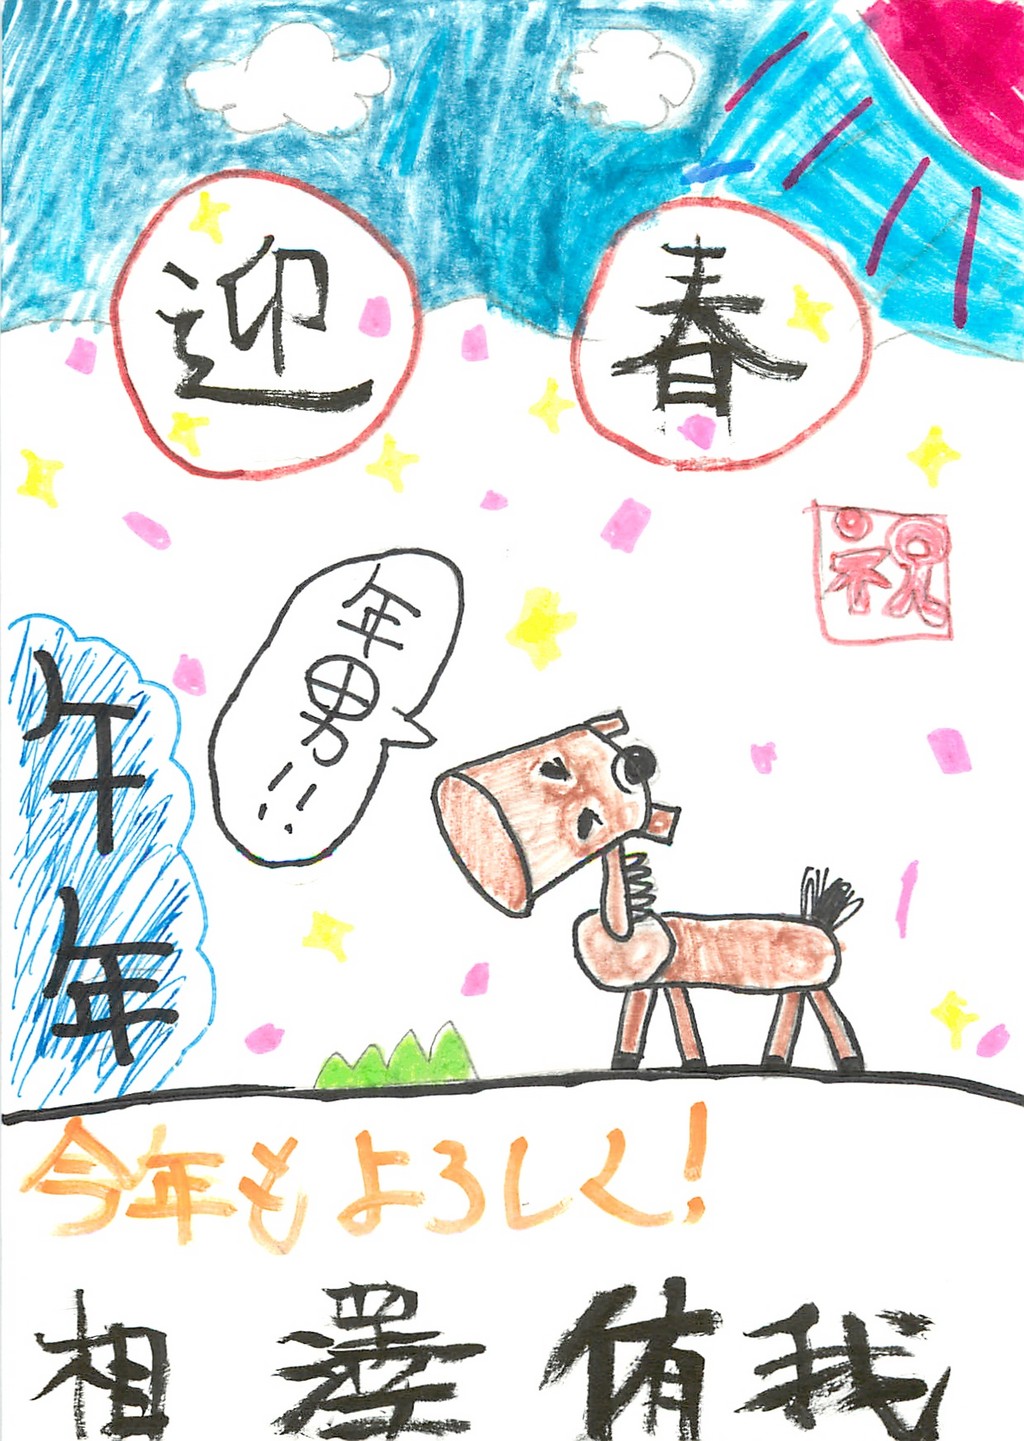 迎春
祝
年男!!
午年
今年もよろしく!
相澤侑我